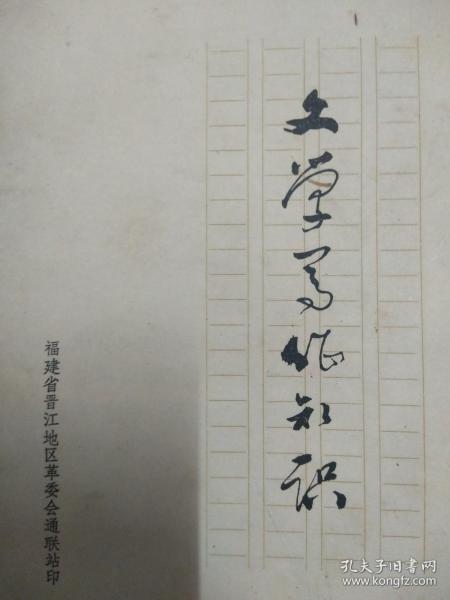 文学写作知识
福建省晋江地区革委会通联站印
孔夫子旧书网
www.kongfz.com